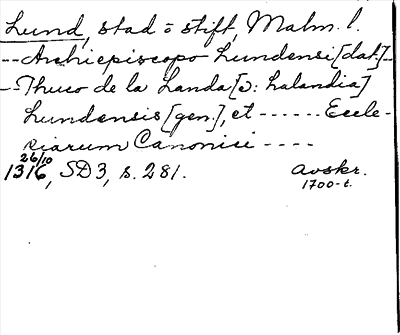 Lund, stad o stift, Malm. l.
-- Archiepiscopo Lundensi [dat.] --
- Thuco de la Landa [ɔ: halandia]
Lundensis [gen.], et ------ Eccle-
siarum Canonici ----
26/10
1316, SD3, s. 281. Avskr.
1700-t.